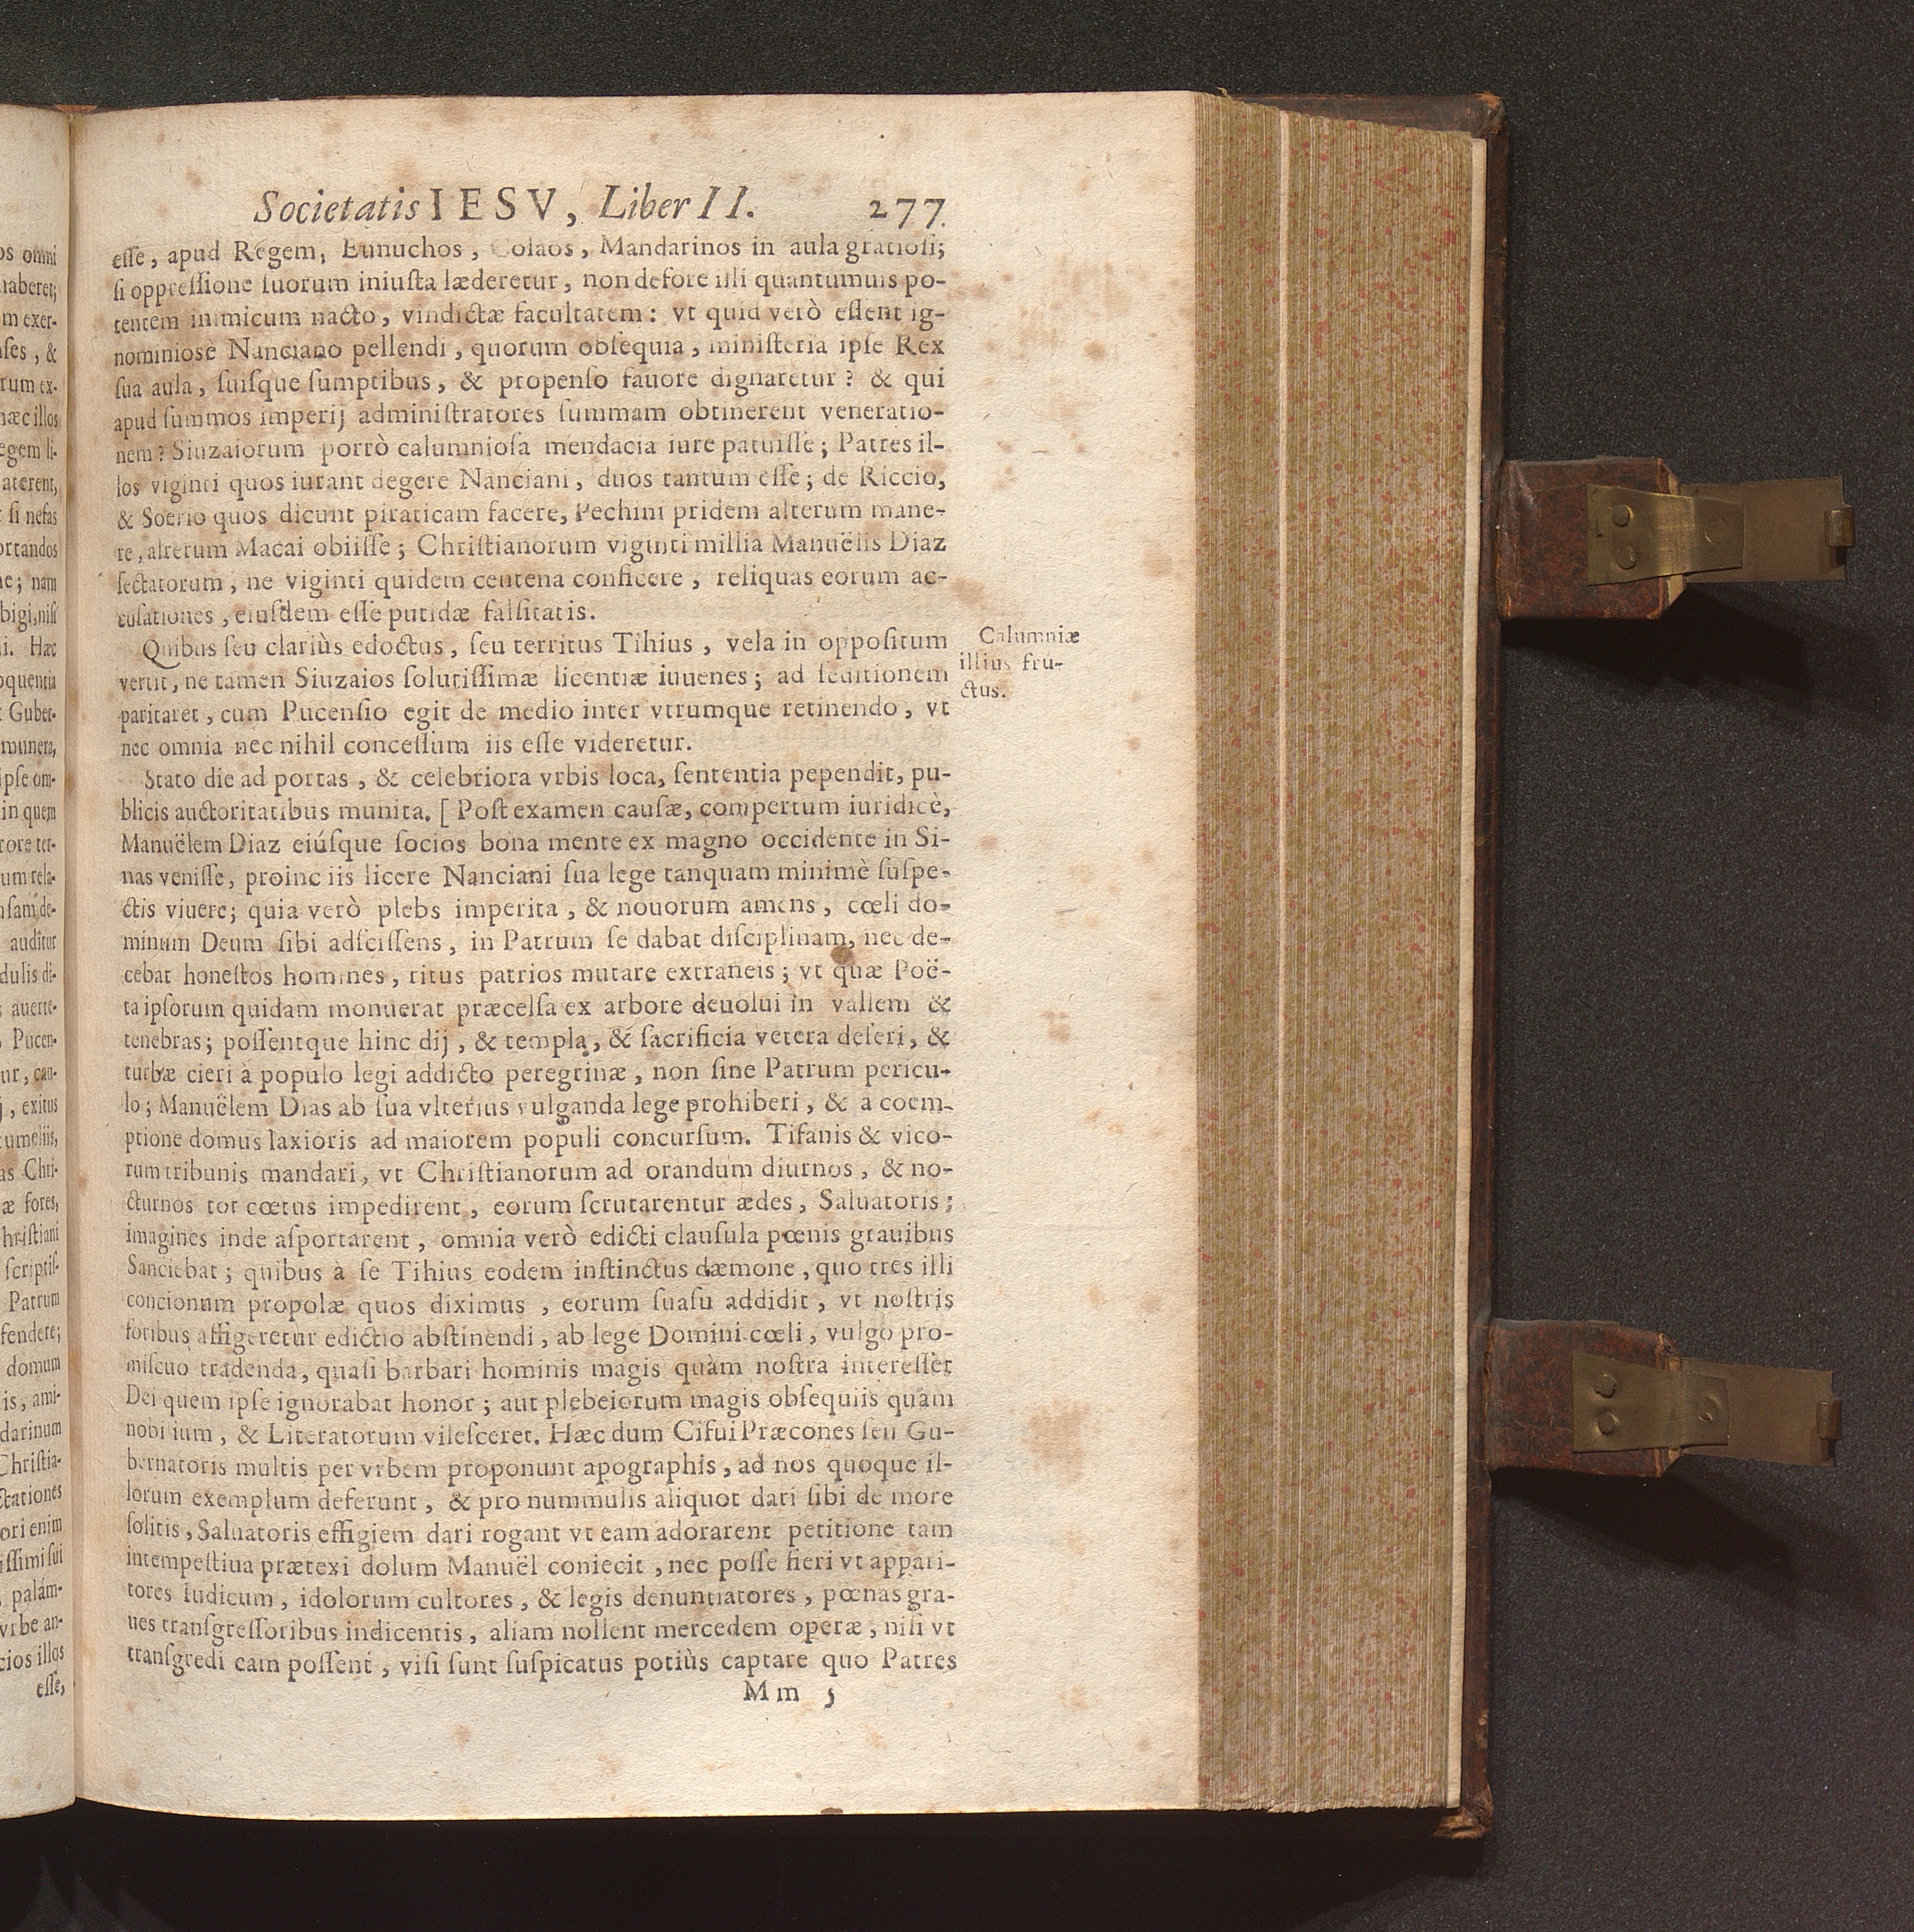 Societatis IESV, Liber II. 277
esse, apud Regem, Eunuchos, Colaos, Mandarinos in aula gratiosi;
si oppressione suorum iniusta læderetur, non defore illi quantumuis po-
tentem inimicum nacto, vindictæ facultatem: vt quid verò essent ig-
nominiose Nanciano pellendi, quorum obsequia, ministeria ipse Rex
sua aula, suisque sumptibus, & propenso fauore dignaretur? & qui
apud summos imperij administratores summam obtinerent veneratio-
nem? Siuzaiorum porrò calumniosa mendacia iure patuisse; Patres il-
los viginti quos iurant degere Nanciani, duos tantum esse; de Riccio,
& Soerio quos dicunt piraticam facere, Pechini pridem alterum mane-
re, alterum Macai obiisse; Christianorum viginti millia Manuëlis Diaz
sectatorum, ne viginti quidem centena conficere, reliquas eorum ac-
cusationes, eiusdem esse putidæ falsitatis.
Quibus seu clariùs edoctus, seu territus Tihius, vela in oppositum
vertit, ne tamen Siuzaios solutissimæ licentiæ iuuenes; ad seditionem
paritaret, cum Pucensio egit de medio inter vtrumque retinendo, vt
nec omnia nec nihil concessum iis esse videretur.
Calumniæ
illius fru-
ctus.
Stato die ad portas, & celebriora vrbis loca, sententia pependit, pu-
blicis auctoritatibus munita. [Post examen causæ, compertum iuridicè,
Manuëlem Diaz eiúsque socios bona mente ex magno occidente in Si-
nas venisse, proinc iis licere Nanciani sua lege tanquam minimè suspe-
ctis viuere; quia verò plebs imperita, & nouorum amens, cœli do-
minum Deum sibi adscissens, in Patrum se dabat disciplinam, nec de-
cebat honestos homines, ritus patrios mutare extraneis; vt quæ Poë-
ta ipsorum quidam monuerat præcelsa ex arbore deuolui in vallem &
tenebras; possentque hinc dij, & templa, & sacrificia vetera deseri, &
turbæ cieri à populo legi addicto peregrinæ, non sine Patrum pericu-
lo; Manuëlem Dias ab sua vlterius vulganda lege prohiberi, & a coem-
ptione domus laxioris ad maiorem populi concursum. Tifanis & vico-
rum tribunis mandari, vt Christianorum ad orandum diurnos, & no-
cturnos tot cœtus impedirent, eorum scrutarentur ædes, Saluatoris;
imagines inde asportarent, omnia verò edicti clausula pœnis grauibus
Sanciebat; quibus à se Tihius eodem instinctus dæmone, quo tres illi
concionum propolæ quos diximus, eorum suasu addidit, vt nostris
foribus affigeretur edictio abstinendi, ab lege Domini cœli, vulgo pro-
miscuo tradenda, quasi barbari hominis magis quàm nostra interesset
Dei quem ipse ignorabat honor; aut plebeiorum magis obsequiis quàm
nobi ium, & Literatorum vilesceret. Hæc dum Cifui Præcones seu Gu-
bernatoris multis per vrbem proponunt apographis, ad nos quoque il-
lorum exemplum deferunt, & pro nummulis aliquot dari sibi de more
solitis, Saluatoris effigiem dari rogant vt eam adorarent petitione tam
intempestiua prætexi dolum Manuël coniecit, nec posse fieri vt appari-
tores Iudicum, idolorum cultores, & legis denuntiatores, pœnas gra-
ues transgressoribus indicentis, aliam nollent mercedem operæ, nisi vt
transgredi eam possent, visi sunt suspicatus potiùs captare quo Patres
Mm 5